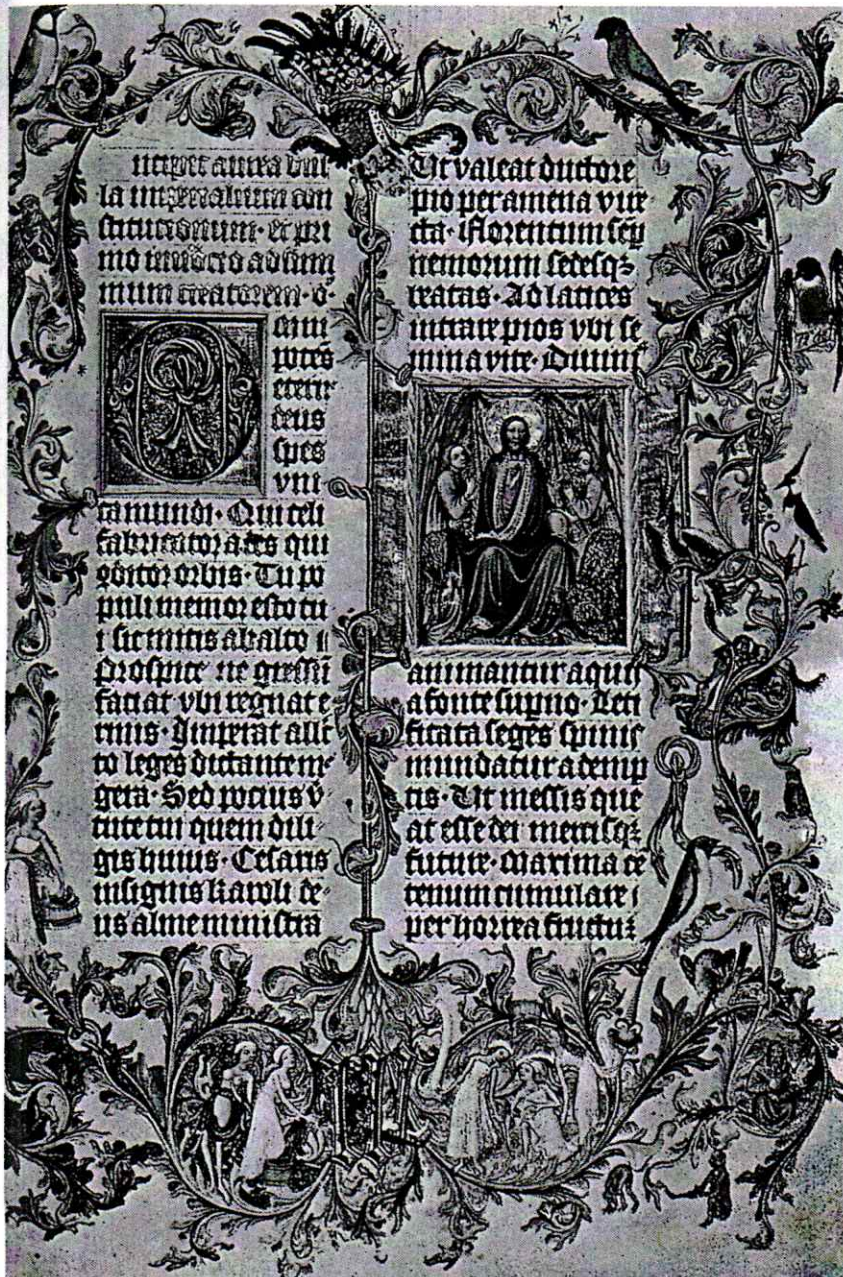 ncipit aurea bul
la imperialium con
stitucionum · et pri
mo invocio ad sum
mum creatorem · o ·
mni
potes
eterne
deus
spes
vni
ca mundi · Qui celi
fabricator ades qui
 orbis · Tu po
puli memor esto tu
i sic mitis ab alto i
Prospice ne gressū
faciat vbi regnat e
rinis · Imperat alle
to leges dictante m
gera · Sed pocius v
tute tui quem dili
gis huius · Cesaris
insignis karoli de
us alme ministra
Ut valeat ductore
pio per amena vire
cta · Florentum sep
nemorum sedesqꝫ
beatas · Ad latices
intrare pios vbi se
mina vite · Diuinis
animantur aqui
a fonte supno · Leti
ficata seges spinis
mundatur ademp
tis · Ut messis que
at esse dei mercisqꝫ
future · Maxima ce
tenum cumulare i
per horrea fructuꝫ